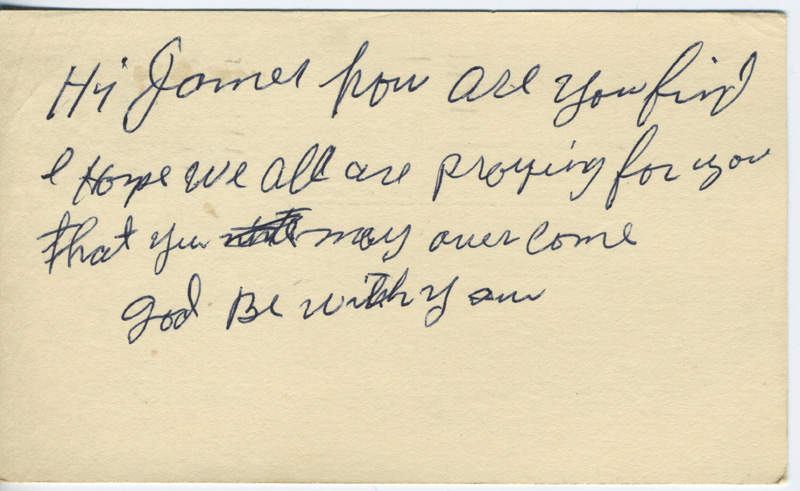 Hi James how are you find
I Hope we all are proying for you
that you may over come
god Be with you